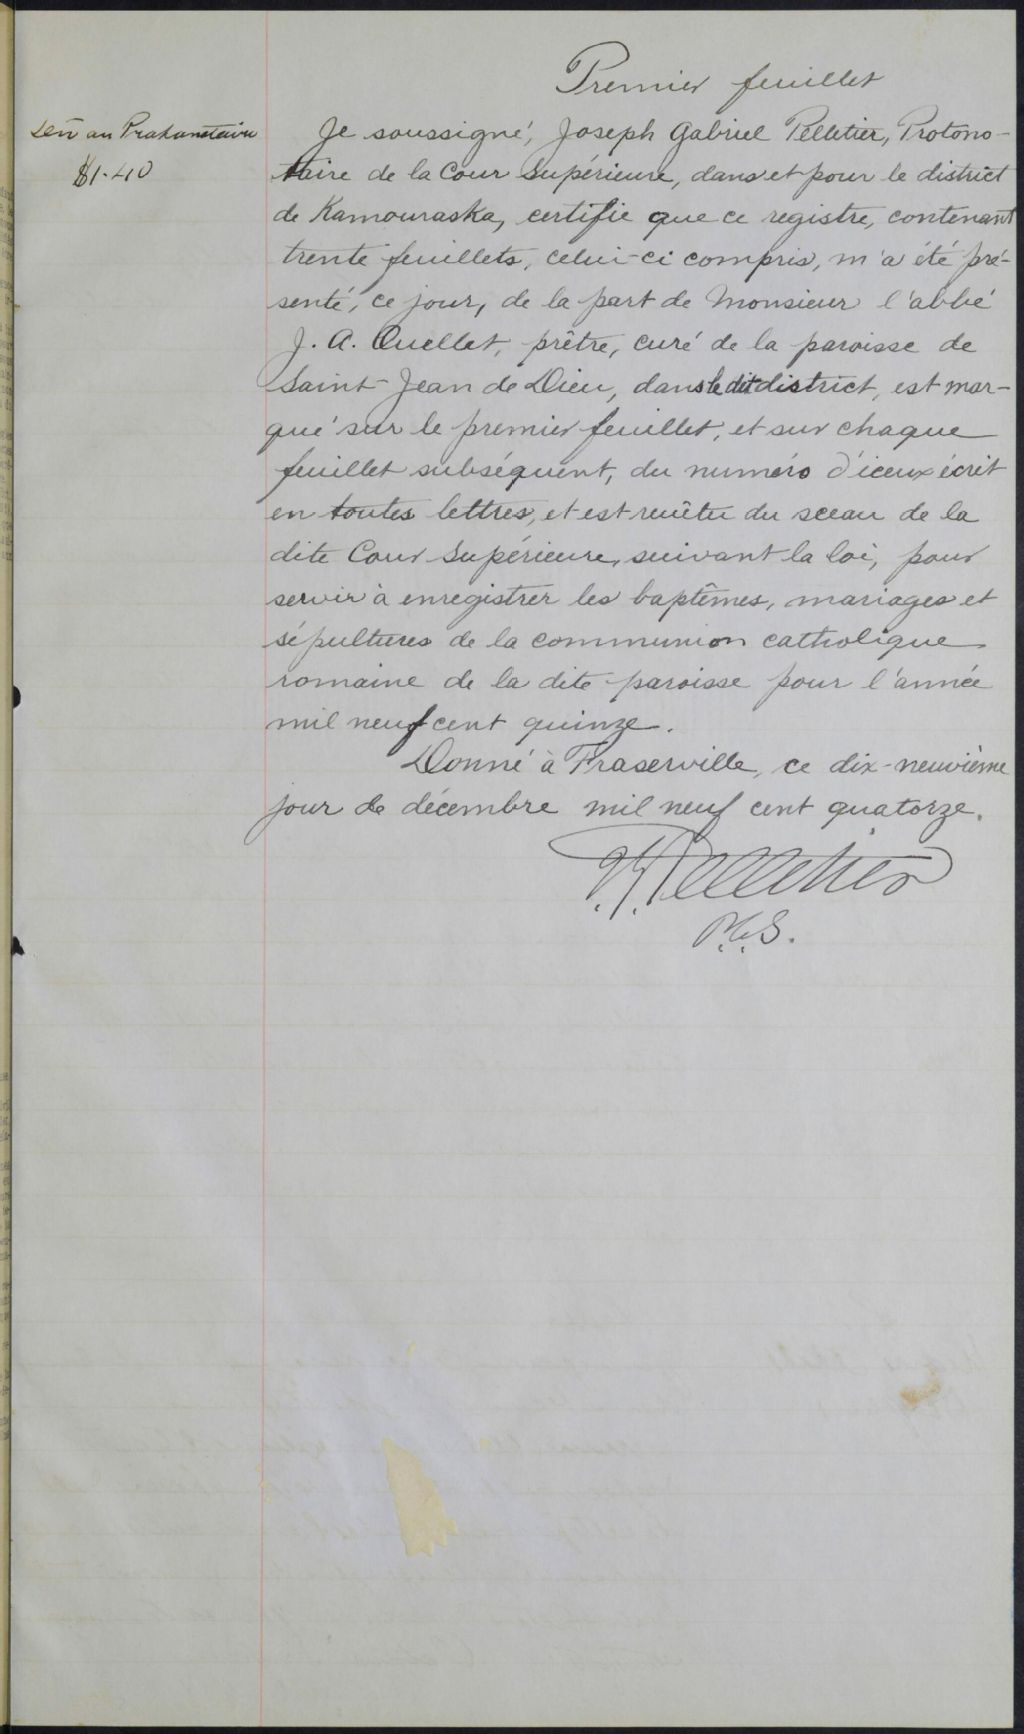 Premier feuillet
au Protonotaire
$1.40
Je soussigné, Joseph Gabriel Pelletier, Protono-
taire de la Cour Supérieure, dans et pour le district
de Kamouraska, certifie que ce registre, contenant
trente feuillets, celui-ci compris, m'a été pré-
senté, ce jour, de la part de Monsieur l'abbé
J. A. Ouellet, prêtre, curé de la paroisse de
Saint-Jean de Dieu, dans le dit district, est mar-
qué sur le premier feuillet, et sur chaque
feuillet subséquent, du numéro d'iceux écrit
en toutes lettres, et est revêtu du sceau de la
dite Cour Supérieure, suivant la loi, pour
servir à enregistrer les baptêmes, mariages et
sépultures de la communion catholique
romaine de la dite paroisse pour l'année
mil neuf cent quinze.
Donné à Fraserville, ce dix-neuvième
jour de décembre mil neuf cent quatorze.
J. G. Pelletier
P.C.S.